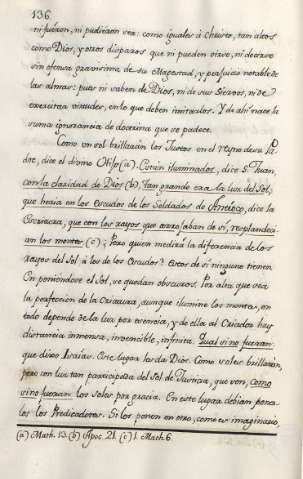 136.
ni fueron, ni pudieron ser: como iguales à chever, tan altos
como Dios, y otros disparos que ni pueden oirse, ni decirse
sin ofensa gravissima de su Magestad, y perjuicio notable de
las almas: pues ni saben de Dios, ni de sus Siervos, ni de
exercitar virtudes, en lo que deben imitarlos. Y de ahi nace la
suma ignorancia de doctrina que se padece.
Como un sol brillaràn los Justos en el Reyno de su Pa
dre, dice el divino (a). Seràn iluminados, dice S. Juan,
con la claridad de Dios (b), tan grande era la luz del Sol,
que heria en los Escudos de los Soldados de Antioco, dice la
Escritura, que con los rayos que arrojaban de sì, resplandeci
an los montes (c); Pero quien medirà la diferencia de los
rayos del Sol à los de los Escudos? Estos de sì ninguno tienen
En poniendose el Sol, se quedan obscuros. Por alta que sea
la perfeccion de la Criatura, aunque ilumine los montes, en
todo depende de la luz por esencia, y de ella al Criador hay
distancia inmensa, invencible, infinita. Qual vino fueran
que dixo Isaias. Este lugar es de Dios. Como soles brillaràn,
pero con luz tan participada del Sol de Justicia, que son, como
vino fueran los soles por gracia. En este lugar debian poner
los los Predicadores. Si los ponen en otro, como es imaginario,
(a) Math. 13. (b) Apoc. 21. (c) 1. Mach. 6.